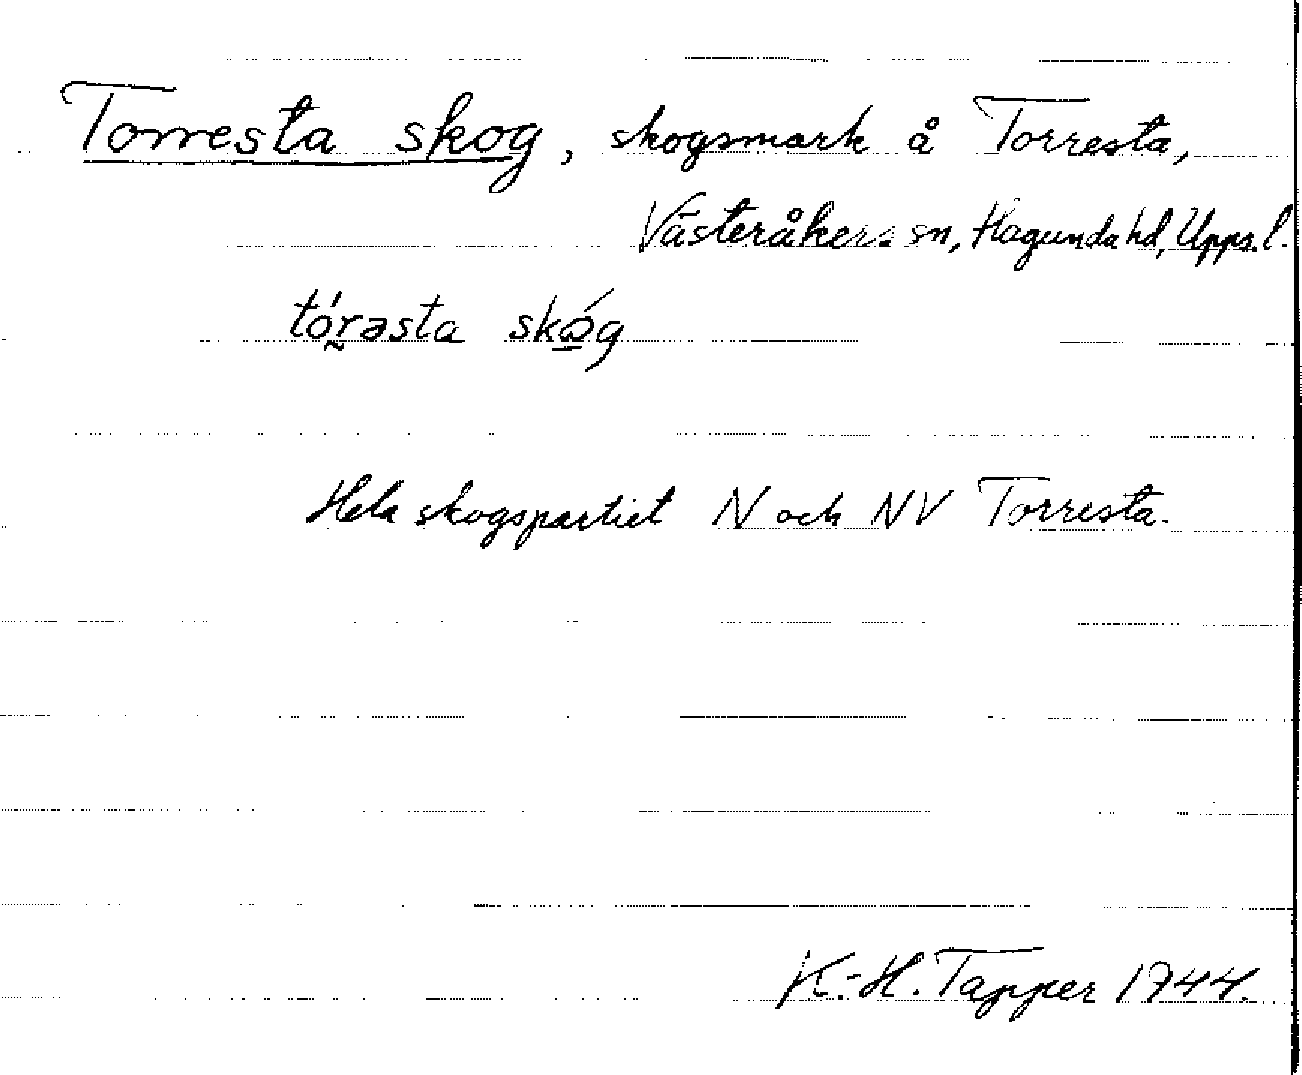 Torresta skog, skogsmark å Torresta,
Västeråkers sn, Hagunda hd, Upps. l.
tó́r̰əsta skó̠g
Hela skogspartiet N och NV Torresta.
K.-H. Tapper 1944.